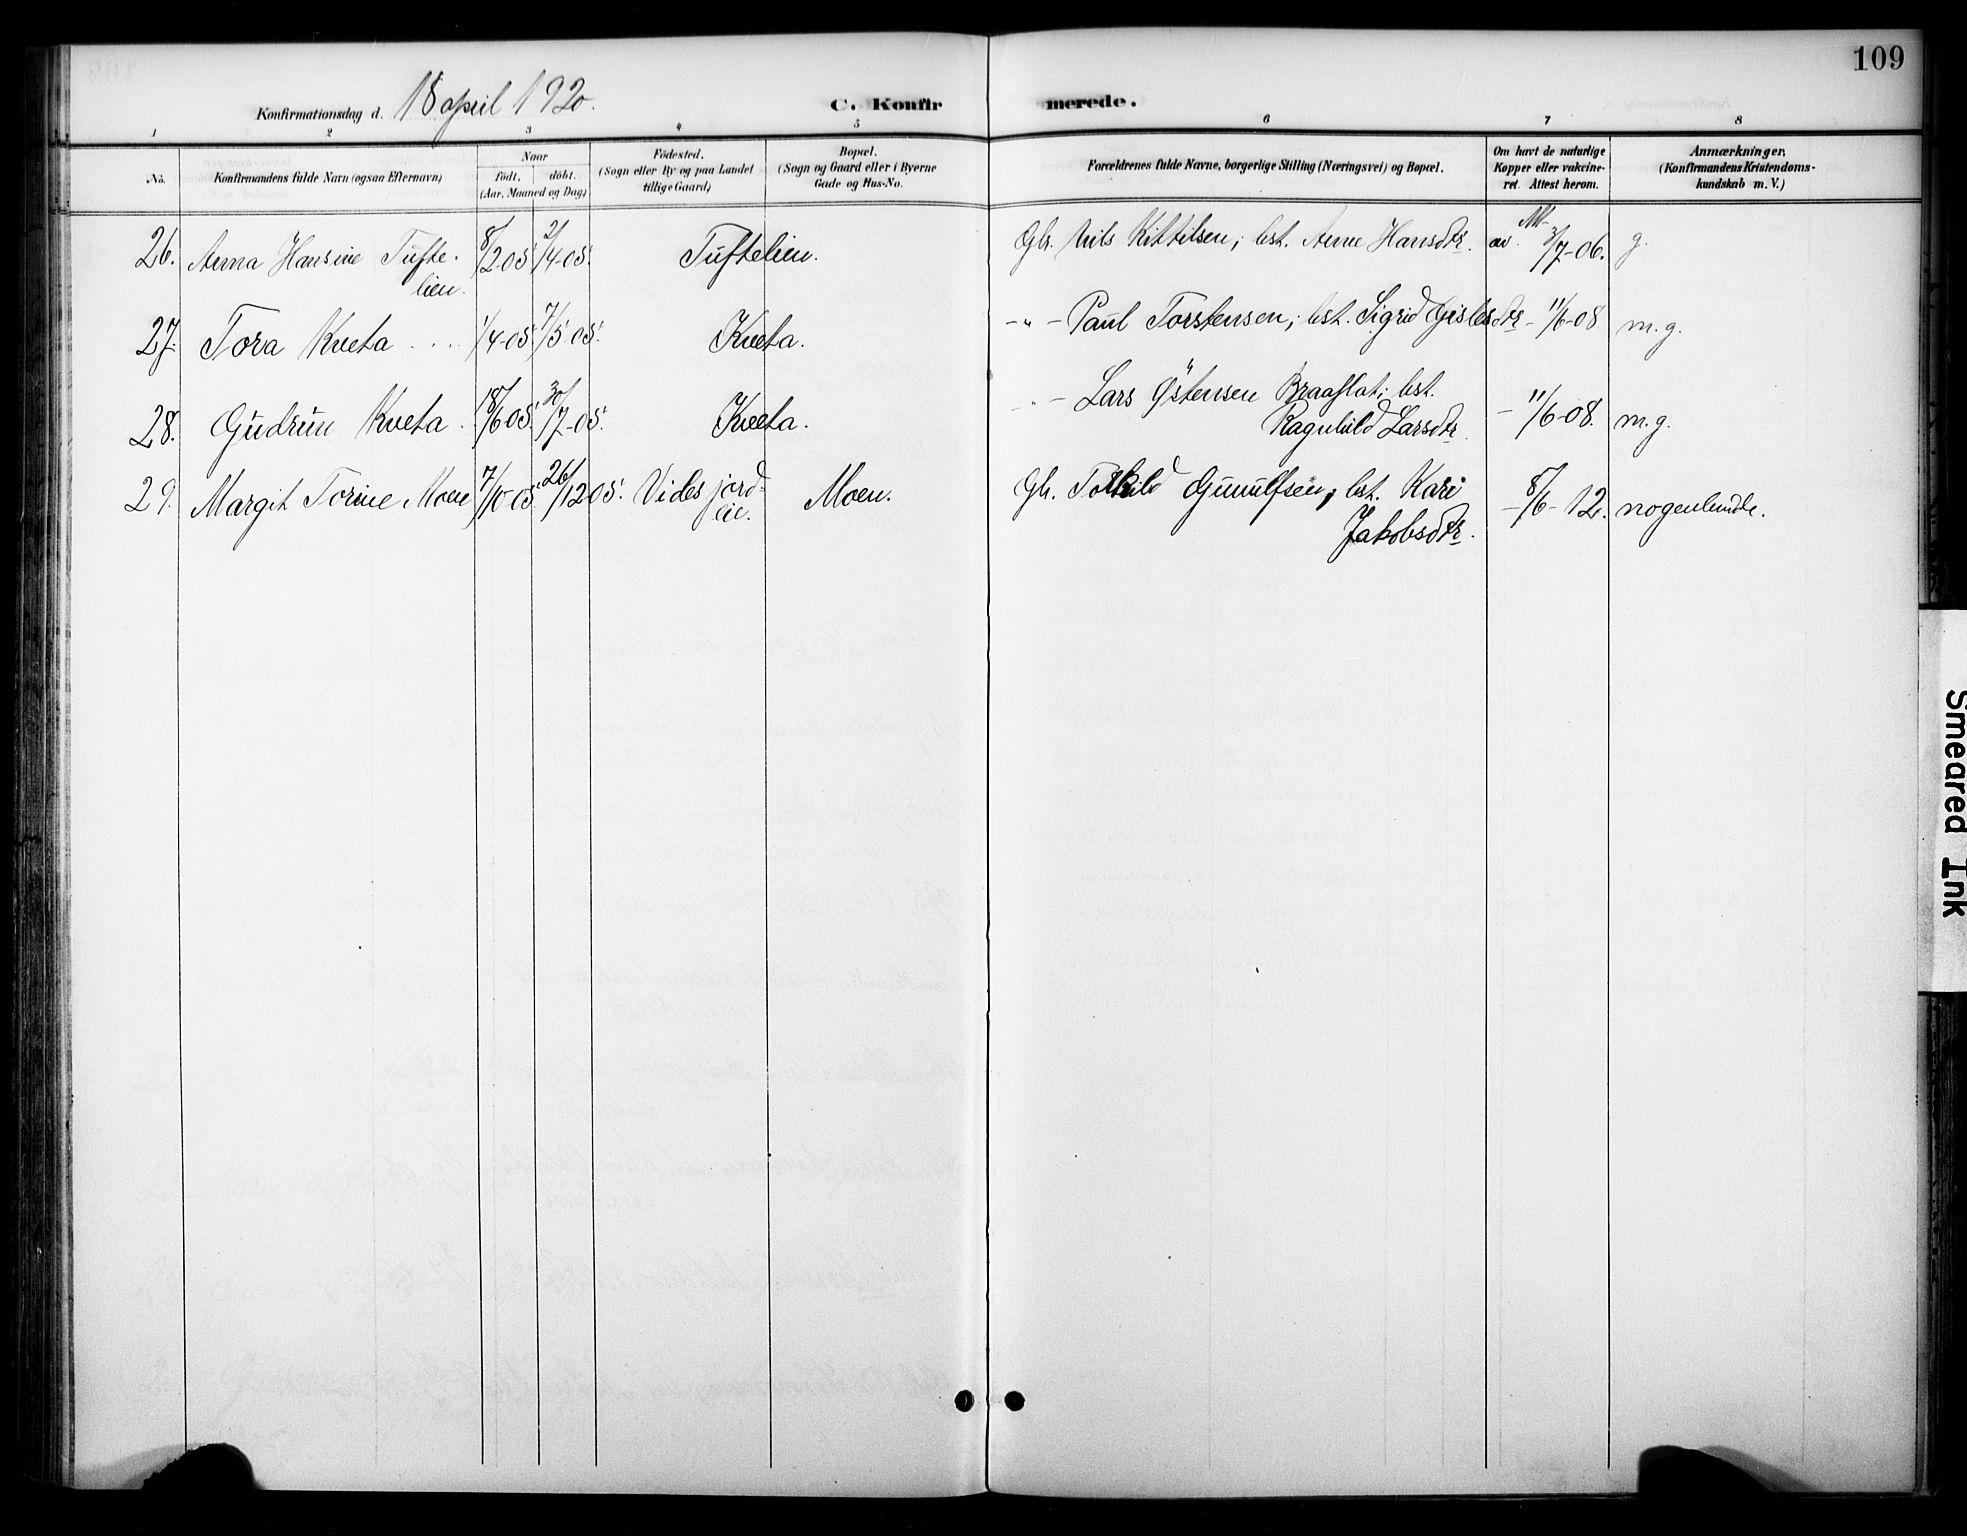 109
Konfirmationsdag d. 18 april 1920.
C. Konfirmerede.
1 2 3 4 5 6 7 8
No.
Konfirmandens fulde Navn (ogsaa Efternavn)
Naar
født. døbt.
(Aar, Maaned og Dag)
Fødested.
(Sogn eller By og paa Landet
tillige Gaard)
Bopæl.
(Sogn og Gaard eller i Byerne
Gade og Hus-No.
Forældrenes fulde Navne, borgerlige Stilling (Næringsvei) og Bopæl.
Om havt de naturlige
Kopper eller vakcine-
ret. Attest herom.
Anmærkninger,
(Konfirmandens Kristendoms-
kundskab m. V.)
26. Anna Hansine Tufte- 8/2 05. 2/4-05. Tuftelien. Gbr. Nils Kittilsen; hst. Anne Hansdtr. av 3/7-06. g.
lien.
27. Tora Kveta 1/4 05. 7/5 05. Kveta. -"- Paul Torstensen; hst. Sigrid Gislesdtr - 11/6-08 m. g.
28. Gudrun Kveta 18/6 05. 30/7-05. Kveta. -"- Lars Østensen Braaflat; hst.
Ragnhild Larsdtr. - 11/6-08. m. g.
29. Margit Torine Moen 7/10 05. 26/12 05. Videsjord- Moen. Gbr. Torkild Gunulfsen; hst. Kari - 8/6-12. nogenlunde.
eie. Jakobsdtr.
Smeared Ink